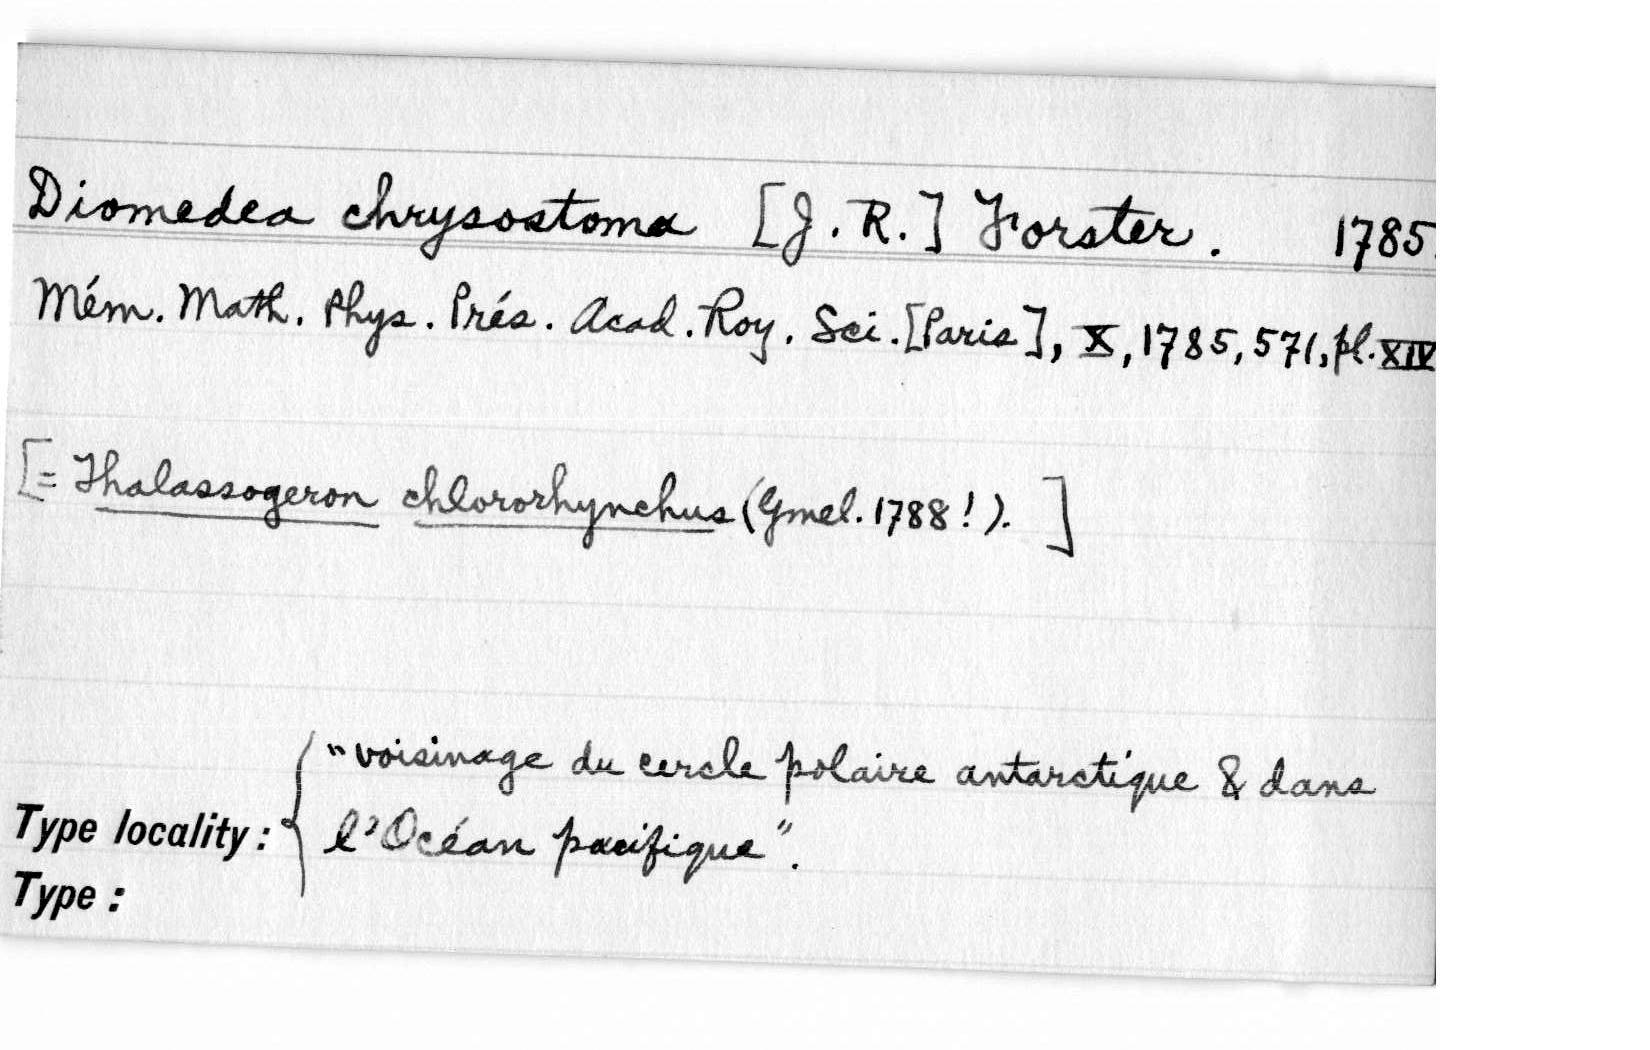 Diomedea chrysostoma [J. R.] Forster. 1785.
Mém. Math. Phys. Prés. Acad. Roy. Sci. [Paris], X, 1785, 571, pl. XIV
[= Thalassogeron chlororhynchus (Gmel. 1788!). ]
"voisinage du cercle polaire antarctique & dans
Type locality: { l'Océan pacifique".
Type: